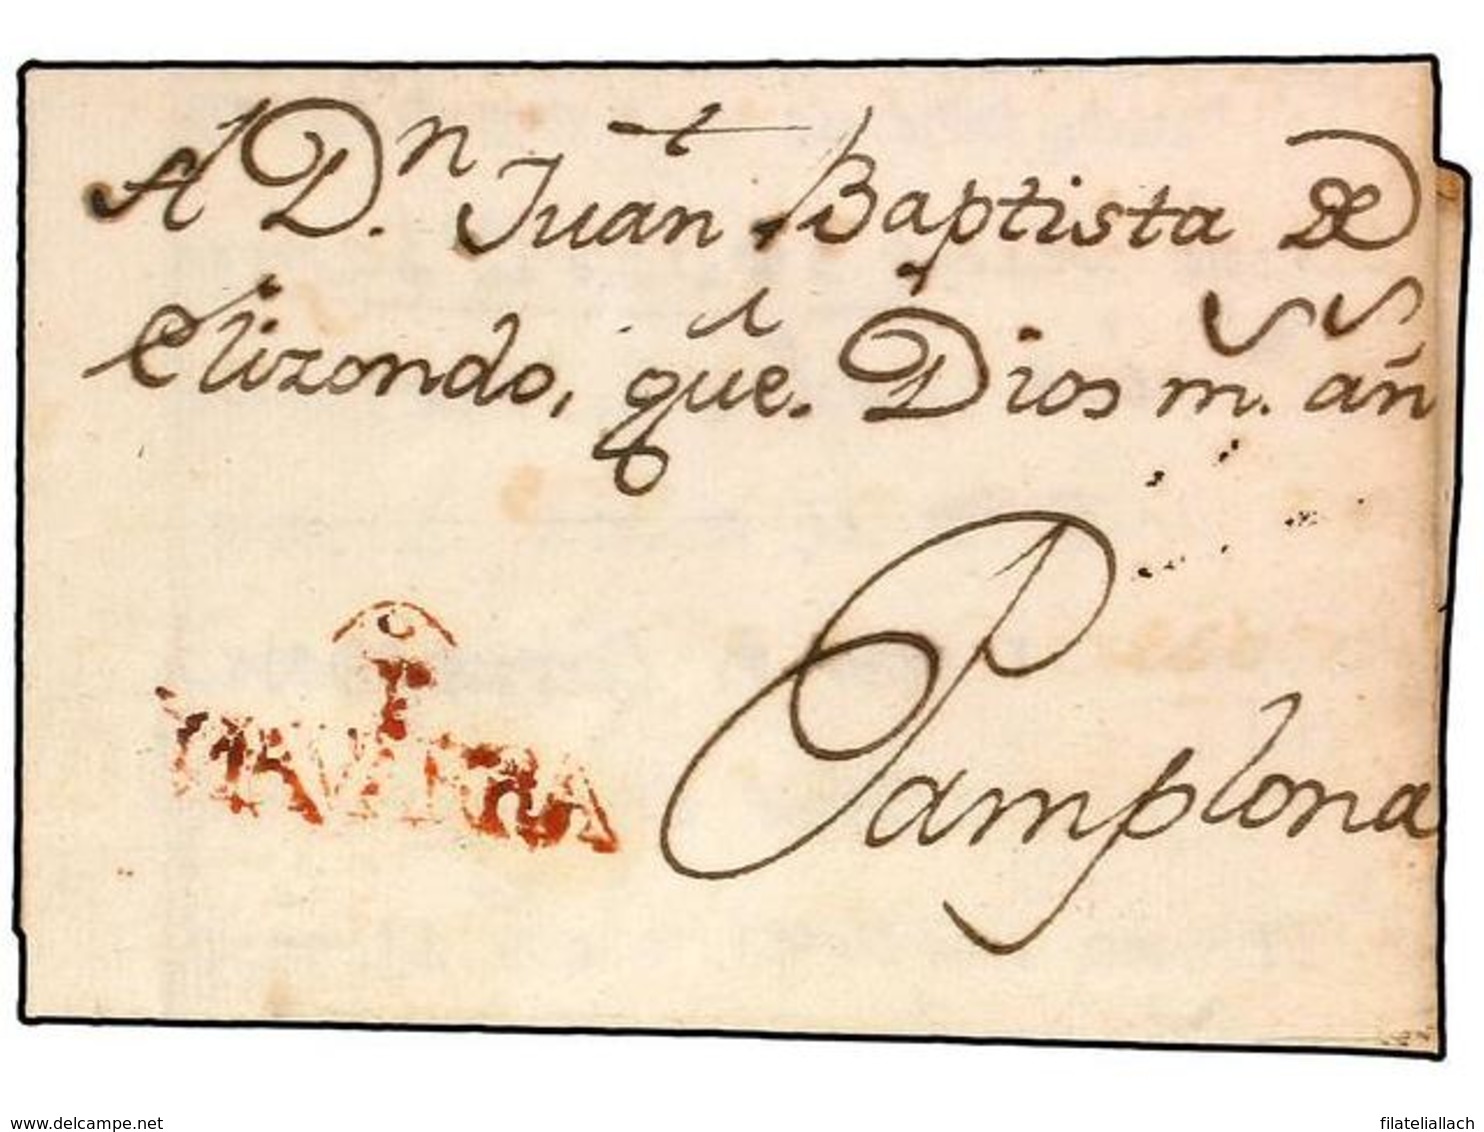 A Dn. Juan Baptista de
Elizondo, que. Dios m. añ
Pamplona
NAVARRA
delcampe.net
filateliallach